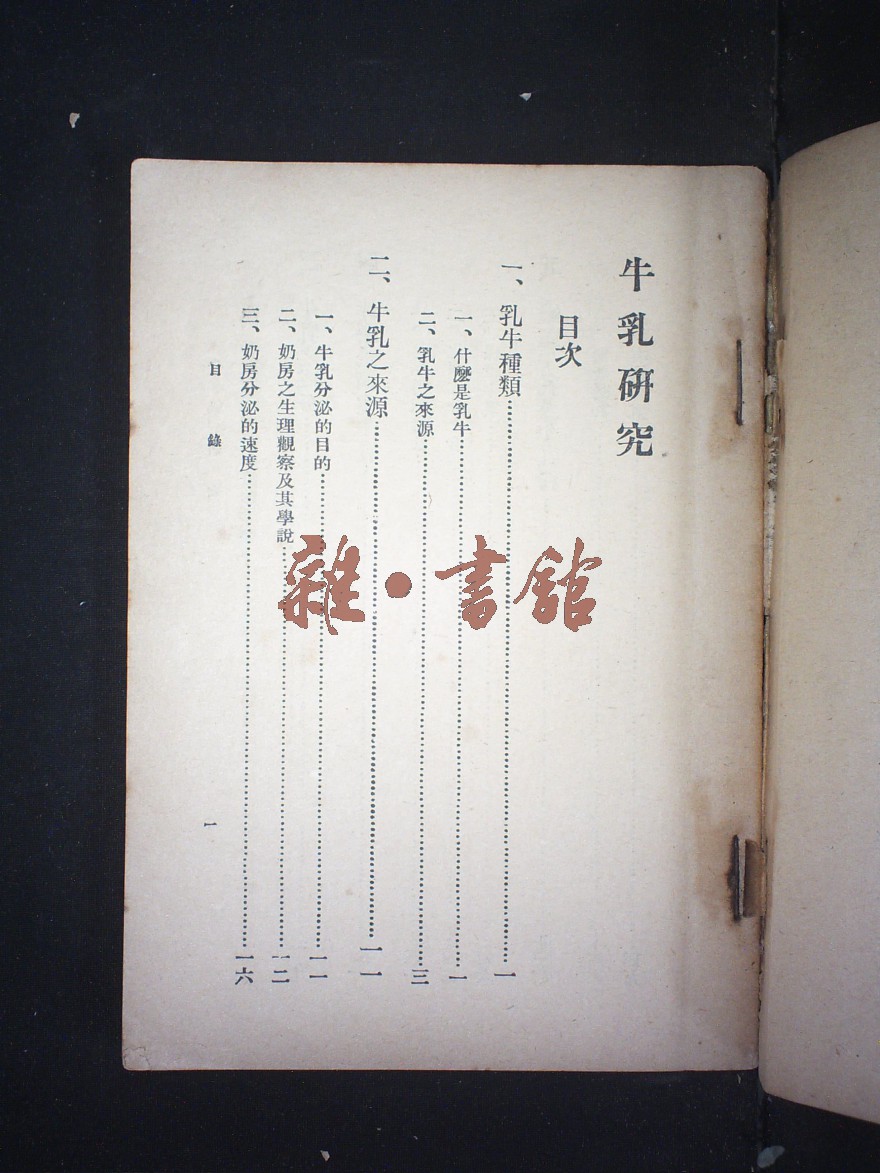 牛乳研究
目次
一、乳牛種類……一
一、什麼是乳牛……一
二、乳牛之來源……三
二、牛乳之來源……一一
一、牛乳分泌的目的……一一
二、奶房之生理觀察及其學說……一二
三、奶房分泌的速度……一六
目錄
一
雜·書館